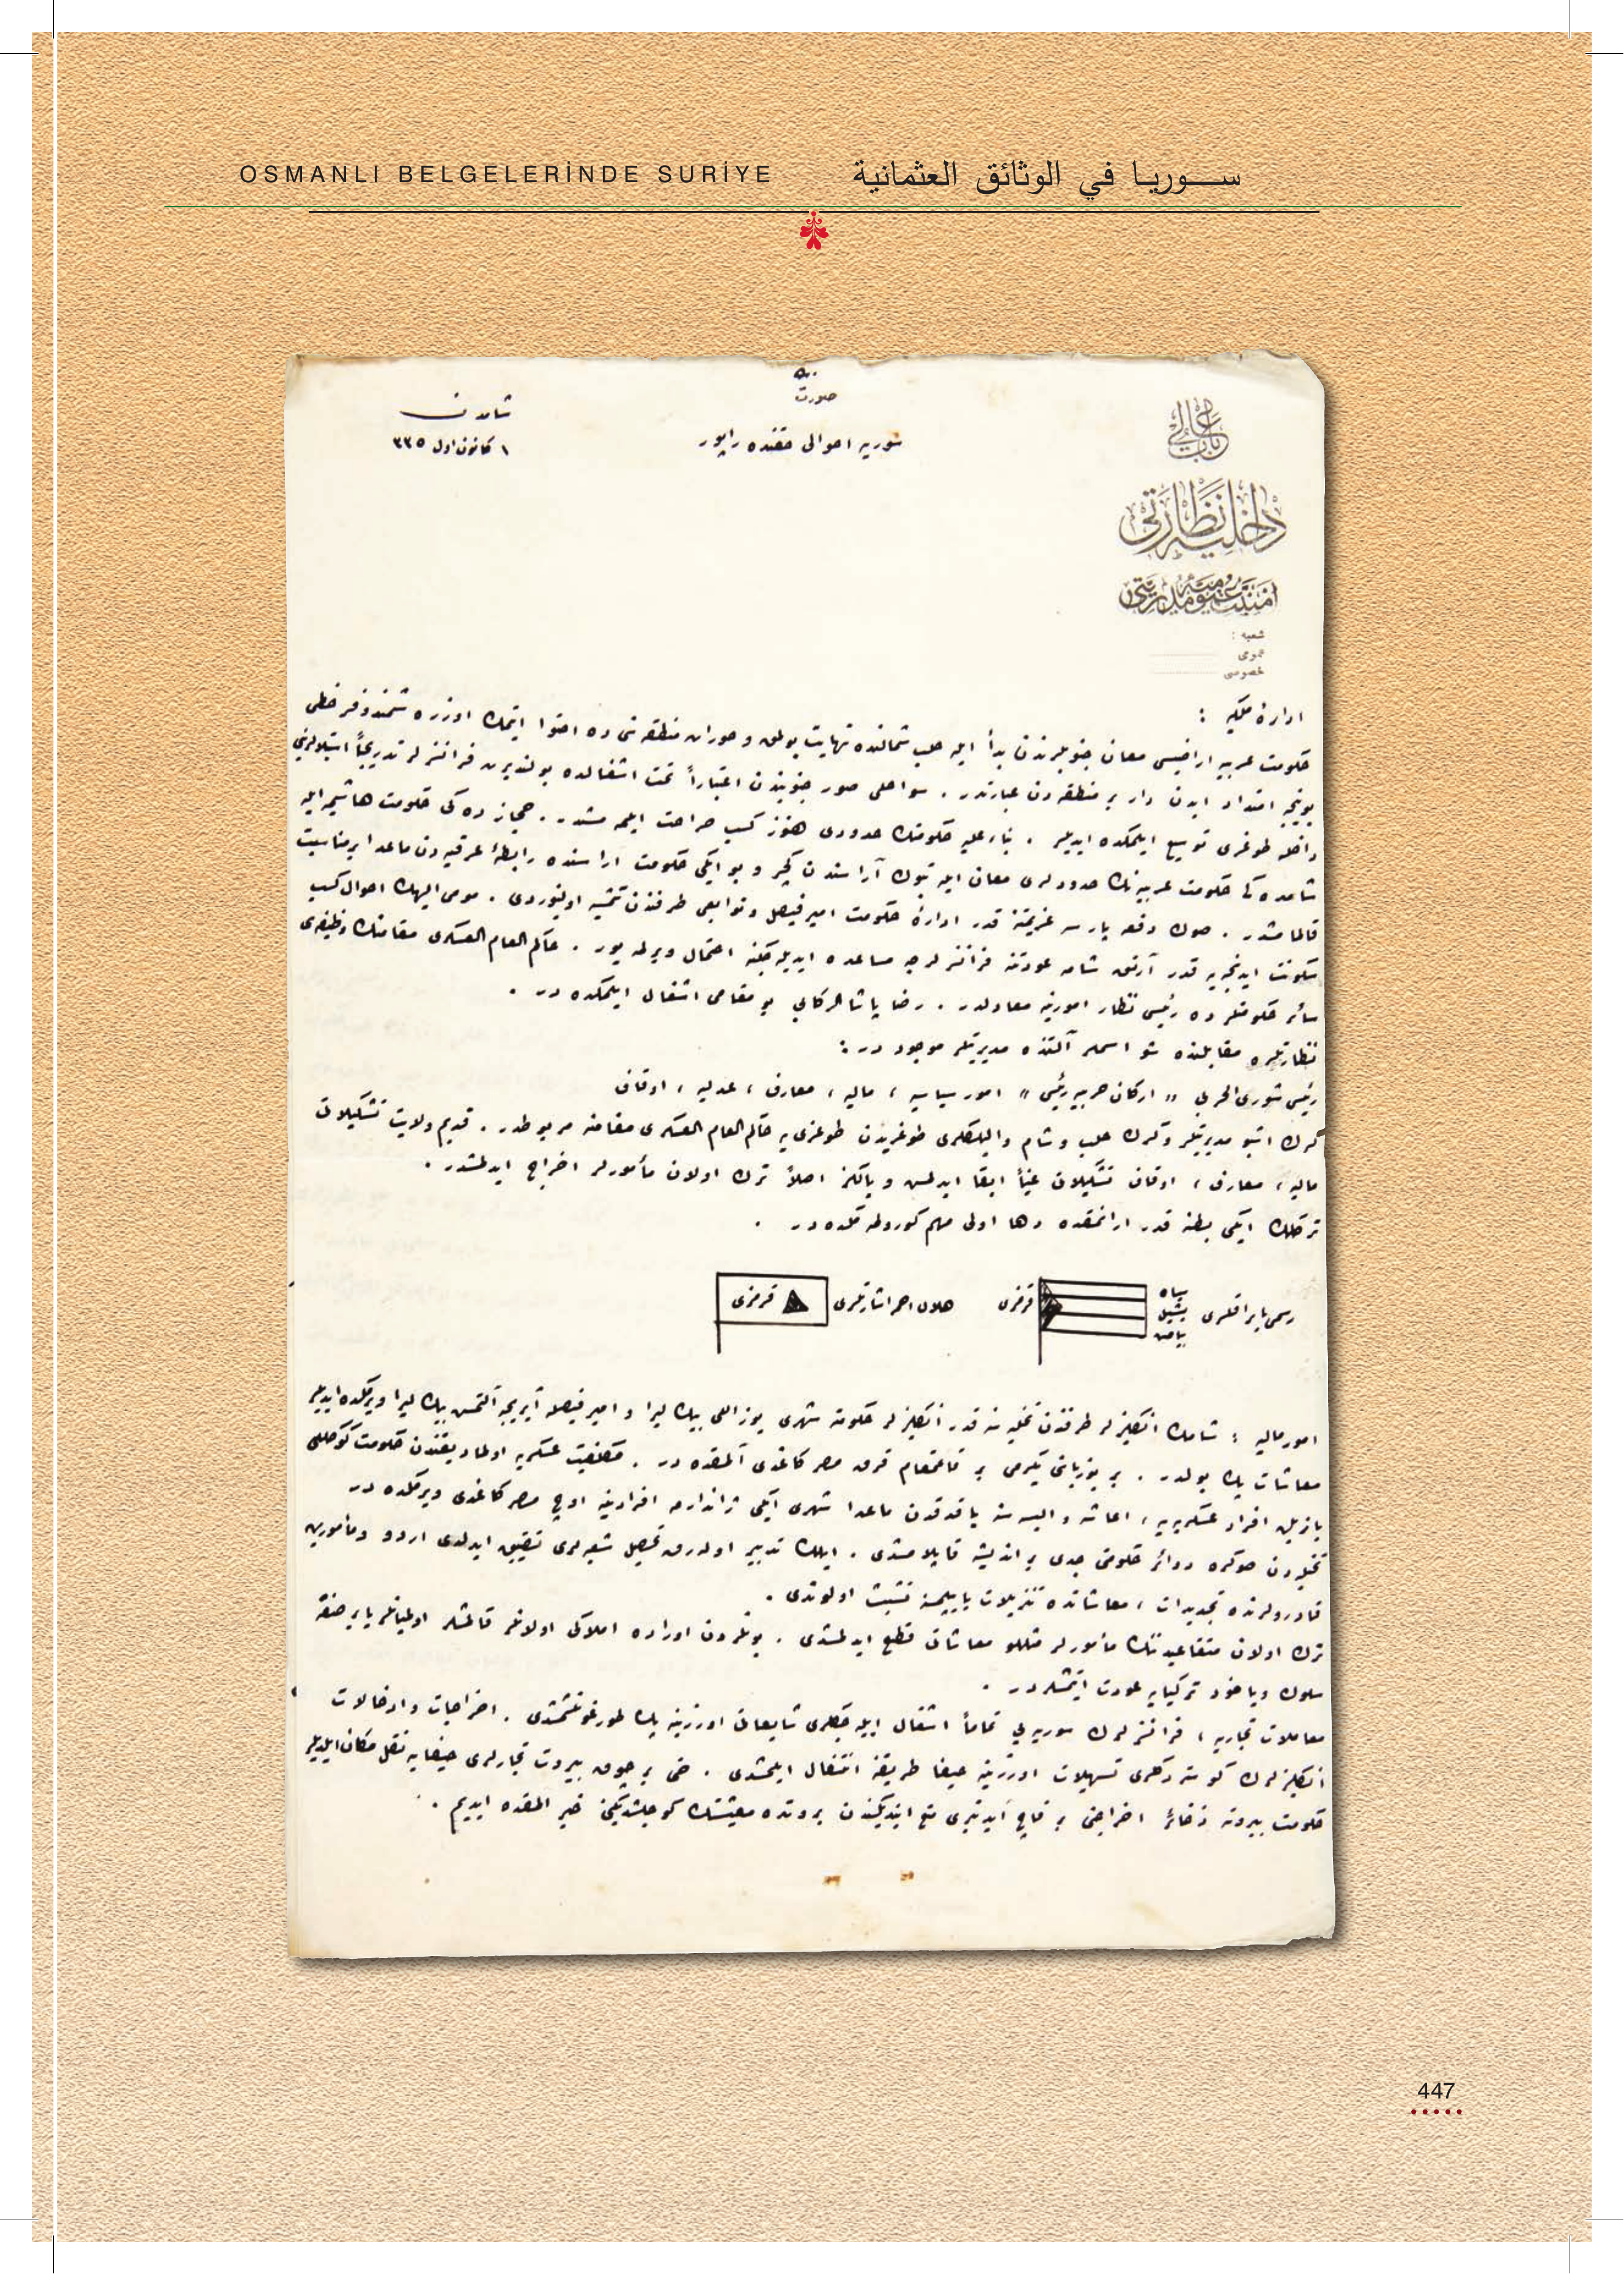 OSMANLI BELGELERİNDE SURİYE
ســوريـا في الوثائق العثمانية
صورت
سوريه احوالى حقنده راپور
شامدن
١ كانون اول ٣٣٥
باب عالى
داخليه نظارتى
امنيت عموميه مديريتى
شعبه :
عمومى
خصوصى
اداره ملكيه :
حكومت عربيه اراضيسى معان جنوبلرندن بدأ ايله حلب شمالنده نهايت بولمق و حوران منطقه سنى ده احتوا ايتمك اوزره شمندوفر خطى
بوينجه امتداد ايدن دار بر منطقه دن عبارتدر . سواحلى صور جنوبندن اعتباراً تحت اشغالده بولنديرن فرانسزلر تدريجاً استيلالرينى
داخله طوغرى توسيع ايلمكده ايديلر . بناء عليه حكومتك حدودى هنوز كسب صراحت ايلمه مشدر . حجازده كى حكومت هاشميه ايله
شامده كى حكومت عربيه نك حدودلرى معان ايله تبوك آراسندن كچر و بو ايكى حكومت اراسنده رابطهٔ عرقيه دن ماعدا بر مناسبت
قالمامشدر . صوك دفعه پارسه عزيمتنه قدر ادارهٔ حكومت امير فيصل و توابعى طرفندن تمشيه اولنوردى . مومى اليهك احوال كسب
سكونت ايدنجيه قدر آرتق شامه عودتنه فرانسزلرجه مساعده ايديله جكنه احتمال ويرلمه يور . حاكم العام العسكرى مقامنك وظيفه سى
سائر حكومتلرده رئيس نظار امورينه معادلدر . رضا پاشا الركابى بو مقامى اشغال ايلمكده در .
نظارتلره مقابلنده شو اسملر آلتنده مديريتلر موجوددر :
رئيس شورى الحربى " اركان حربيه رئيسى " امور سياسيه ، ماليه ، معارف ، عدليه ، اوقاف
كرك اشبو مديريتلر و كرك حلب و شام واليلكلرى طوغريدن طوغرى يه حاكم العام العسكرى مقامنه مربوطدر . قديم ولايت تشكيلاتى
ماليه ، معارف ، اوقاف تشكيلاتى عيناً ابقا ايدلمش و يالكز اصلاً ترك اولان مأمورلر اخراج ايدلمشدر .
تركلك ايكى بطنه قدر ارانمقده و دها اولى مهم كورولمكده در .
رسمى بايراقلرى
سياه
يشيل
بياض
قرمزى
هلال احمر اشارتلرى
قرمزى
امور ماليه : شامك انكليزلر طرفندن تخليه سنه قدر انكليزلر حكومته شهرى يوز اللى بيك ليرا و امير فيصله آيريجه آلتمش بيك ليرا ويرمكده ايديلر
معاشات پك بولدر . بر يوزباشى يكرمى بر قائمقام قرق مصر كاغدى آلمقده در . مكلفيت عسكريه اولماديغندن حكومت كوكللى
يازيلن افراد عسكريه يه ، اعاشه و البسه سنه ياقه دن ماعدا شهرى ايكى ژاندارمه افرادينه اوچ مصر كاغدى ويرمكده در
تخليه دن صوكره دوائر حكومتى جدى بر انديشه قاپلامشدى . ايلك تدبير اوله رق تحصيل شعبه لرى تضييق ايدلدى اردو و مأمورين
قادرولرنده تجديدات ، معاشاتده تنزيلات ياپيلمسنه تشبث اولوندى .
ترك اولان متقاعدينك مأمورلر مثللو معاشاتى قطع ايدلمشدى . بونلردن اوراده املاكى اولانلر قالمشلر اولميانلر يا بر صنفه
سلوك و ياخود تركيايه عودت ايتمشلردر .
معاملات تجاريه ، فرانسزلرك سوريه يى تماماً اشغال ايليه جكلرى شايعاتى اوزرينه پك طورغونلشمشدى . اخراجات و ادخالات
انكليزلرك كوستردكلرى تسهيلات اوزرينه حيفا طريقنه انتقال ايلمشدى . حتى بر چوق بيروت تجارلرى حيفايه نقل مكان ايلديلر
حكومت بيروته ذخائر اخراجنى بر قاچ آيدنبرى منع ايتديكندن بيروتده معيشتك كوجلشديكنى خبر المقده ايديم .
447